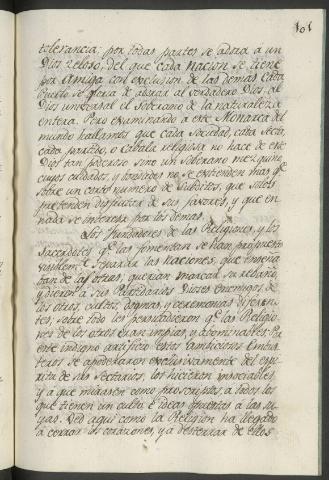 101
tolerancia; por todas partes se adora a un
Dios zeloso; del que cada nacion se tiene
por Amiga con exclusion de las demas. Cada
Pueblo se gloria de adorar al verdadero Dios, al
Dios universal el Soberano de la naturaleza
entera. Pero examinando a este Monarca del
mundo hallamos que cada Sociedad, cada Secta,
cada partido, o cabala religiosa no hace de este
Dios tan poderoso sino un Soberano mezquino
cuyos cuidados, y bondades no se extienden mas qe.
sobre un corto numero de Subditos, que solos
pretenden disfrutar de sus favores, y que en
nada se interesa por los demas.
Los fundadores de las Religiones, y los
Sacerdotes qe. las fomentan se han propuesto
visiblemte. separar las naciones, que enseña
ban de las otras; querian marcar su rebaño,
y dieron a sus Partidarios Dioses enemigos de
los otros, cultos, dogmas, y ceremonias diferen
tes; sobre todo les persuadieron qe. las Religio
nes de los otros eran impias, y abominables. Por
este indigno artificio estos ambiciosos Embus
teros se apoderaron exclusivamente del espi
ritu de sus sectarios, los hicieron insociables,
y a que mirasen como proscriptos, a todos los
que tienen un culto, e ideas opuestas a las su
yas. Ved aqui como la Religion ha llegado
a cerrar los corazones, y a desterrar de ellos